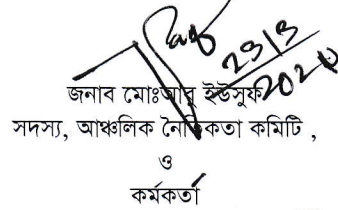 ২৯/৯
২০২৫
জনাব মোঃআবু ইউসুফ
সদস্য, আঞ্চলিক নৈতিকতা কমিটি ,
ও
কর্মকর্তা